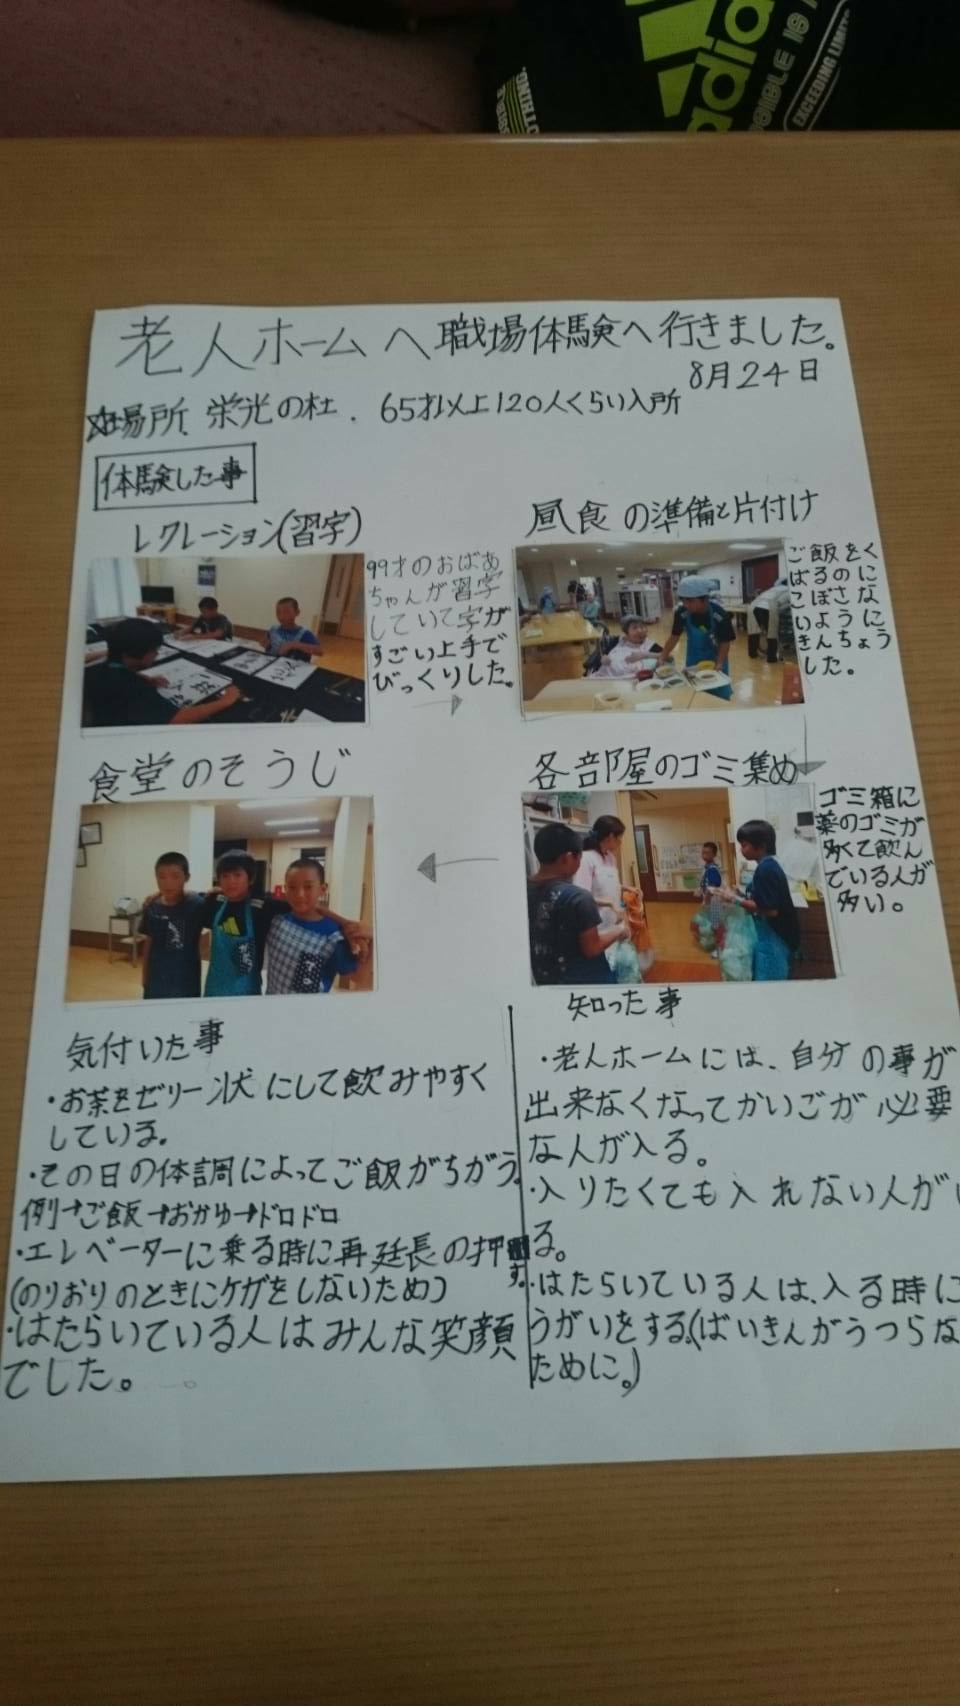 adidas
EXCEEDING LIMITS
老人ホームへ職場体験へ行きました。
8月24日
場所、栄光の杜、65才以上120人くらい入所
体験した事
レクレーション(習字)
99才のおばあ
ちゃんが習字
していて字が
すごい上手で
びっくりした。
昼食の準備と片付け
ご飯をく
ばるのに
こぼさな
いように
きんちょう
した。
各部屋のゴミ集め
ゴミ箱に
薬のゴミが
多くて飲ん
でいる人が
多い。
食堂のそうじ
気付いた事
・お茶をゼリー状にして飲みやすく
している。
・その日の体調によってご飯がちがう。
例→ご飯→おかゆ→ドロドロ
・エレベーターに乗る時に再延長の押
す。
(のりおりのときにケガをしないため)
・はたらいている人はみんな笑顔
でした。
知った事
・老人ホームには、自分の事が
出来なくなってかいごが必要
な人が入る。
・入りたくても入れない人がい
る。
・はたらいている人は、入る時に
うがいをする。(ばいきんがうつらな
ために。)